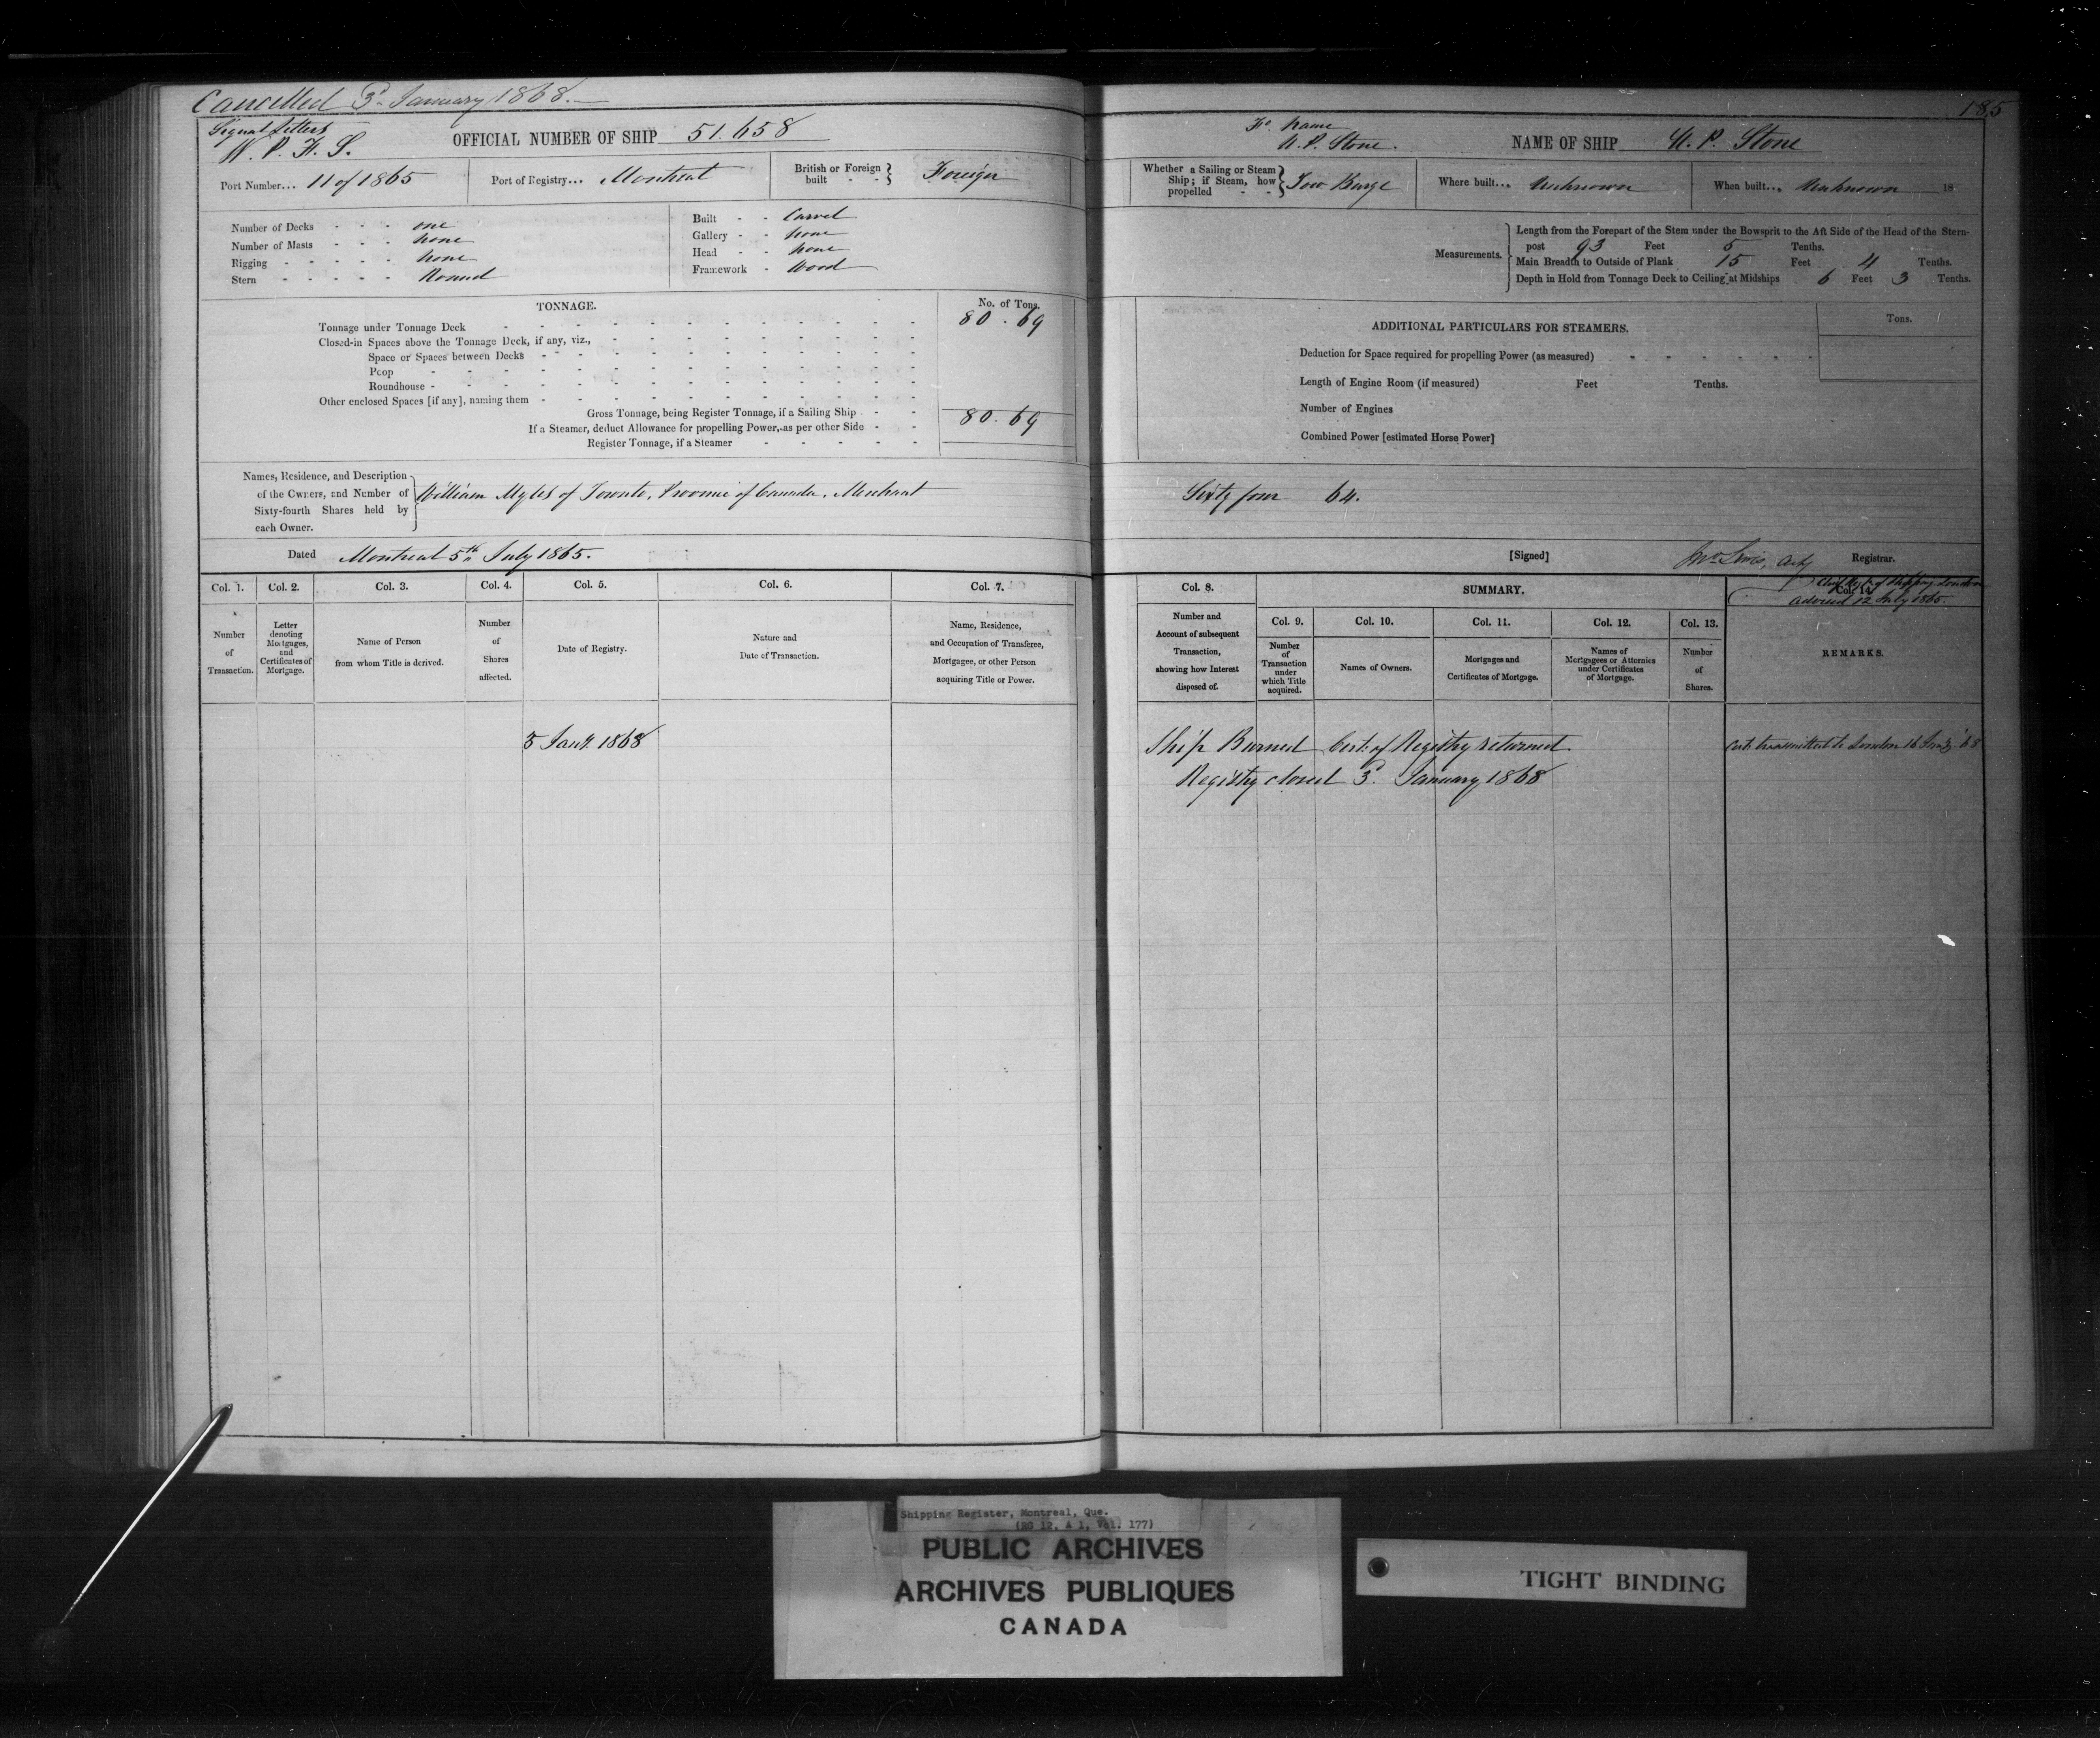 Cancelled 3d January 1868.
185
Signal Letters
W. P. F. S.
OFFICIAL NUMBER OF SHIP 51.658
Fo. Name
N. P. Stone.
NAME OF SHIP N. P. Stone
Port Number... 11 of 1865
Port of Registry... Montreal
British or Foreign built - - Foreign
Whether a Sailing or Steam Ship; if Steam, how propelled - - Tow Barge
Where built... Unknown
When built... Unknown 18
Number of Decks - - - one
Number of Masts - - - none
Rigging - - - - - none
Stern - - - - - Round
Built - - Carvel
Gallery - - none
Head - - none
Framework - Wood
Measurements.
Length from the Forepart of the Stem under the Bowsprit to the Aft Side of the Head of the Stern-
post 93 Feet 5 Tenths.
Main Breadth to Outside of Plank 15 Feet 4 Tenths.
Depth in Hold from Tonnage Deck to Ceiling at Midships 6 Feet 3 Tenths.
TONNAGE.
No. of Tons.
Tonnage under Tonnage Deck 80.69
Closed-in Spaces above the Tonnage Deck, if any, viz.,
Space or Spaces between Decks
Poop
Roundhouse
Other enclosed Spaces [if any], naming them
Gross Tonnage, being Register Tonnage, if a Sailing Ship 80.69
If a Steamer, deduct Allowance for propelling Power, as per other Side
Register Tonnage, if a Steamer
ADDITIONAL PARTICULARS FOR STEAMERS.
Tons.
Deduction for Space required for propelling Power (as measured)
Length of Engine Room (if measured) Feet Tenths.
Number of Engines
Combined Power [estimated Horse Power]
Names, Residence, and Description
of the Owners, and Number of
Sixty-fourth Shares held by
each Owner.
William Myles of Toronto, Province of Canada, Merchant
Sixty four 64.
Dated Montreal 5th July 1865.
[Signed] Jno Lewis, Actg Registrar.
Shipping London
Advised 12 July 1865.
Col. 1.
Number
of
Transaction.
Col. 2.
Letter
denoting
Mortgages,
and
Certificates of
Mortgage.
Col. 3.
Name of Person
from whom Title is derived.
Col. 4.
Number
of
Shares
affected.
Col. 5.
Date of Registry.
Col. 6.
Nature and
Date of Transaction.
Col. 7.
Name, Residence,
and Occupation of Transferee,
Mortgagee, or other Person
acquiring Title or Power.
Col. 8.
Number and
Account of subsequent
Transaction,
showing how Interest
disposed of.
SUMMARY.
Col. 9.
Number
of
Transaction
under
which Title
acquired.
Col. 10.
Names of Owners.
Col. 11.
Mortgages and
Certificates of Mortgage.
Col. 12.
Names of
Mortgagees or Attornies
under Certificates
of Mortgage.
Col. 13.
Number
of
Shares.
Col. 14.
REMARKS.
3 Jany. 1868
Ship Burned Cert: of Registry returned.
Registry closed 3d. January 1868
Cert: transmitted to London 16 Jany. '68
Shipping Register, Montreal, Que.
(RG 12, A 1, Vol. 177)
PUBLIC ARCHIVES
ARCHIVES PUBLIQUES
CANADA
TIGHT BINDING